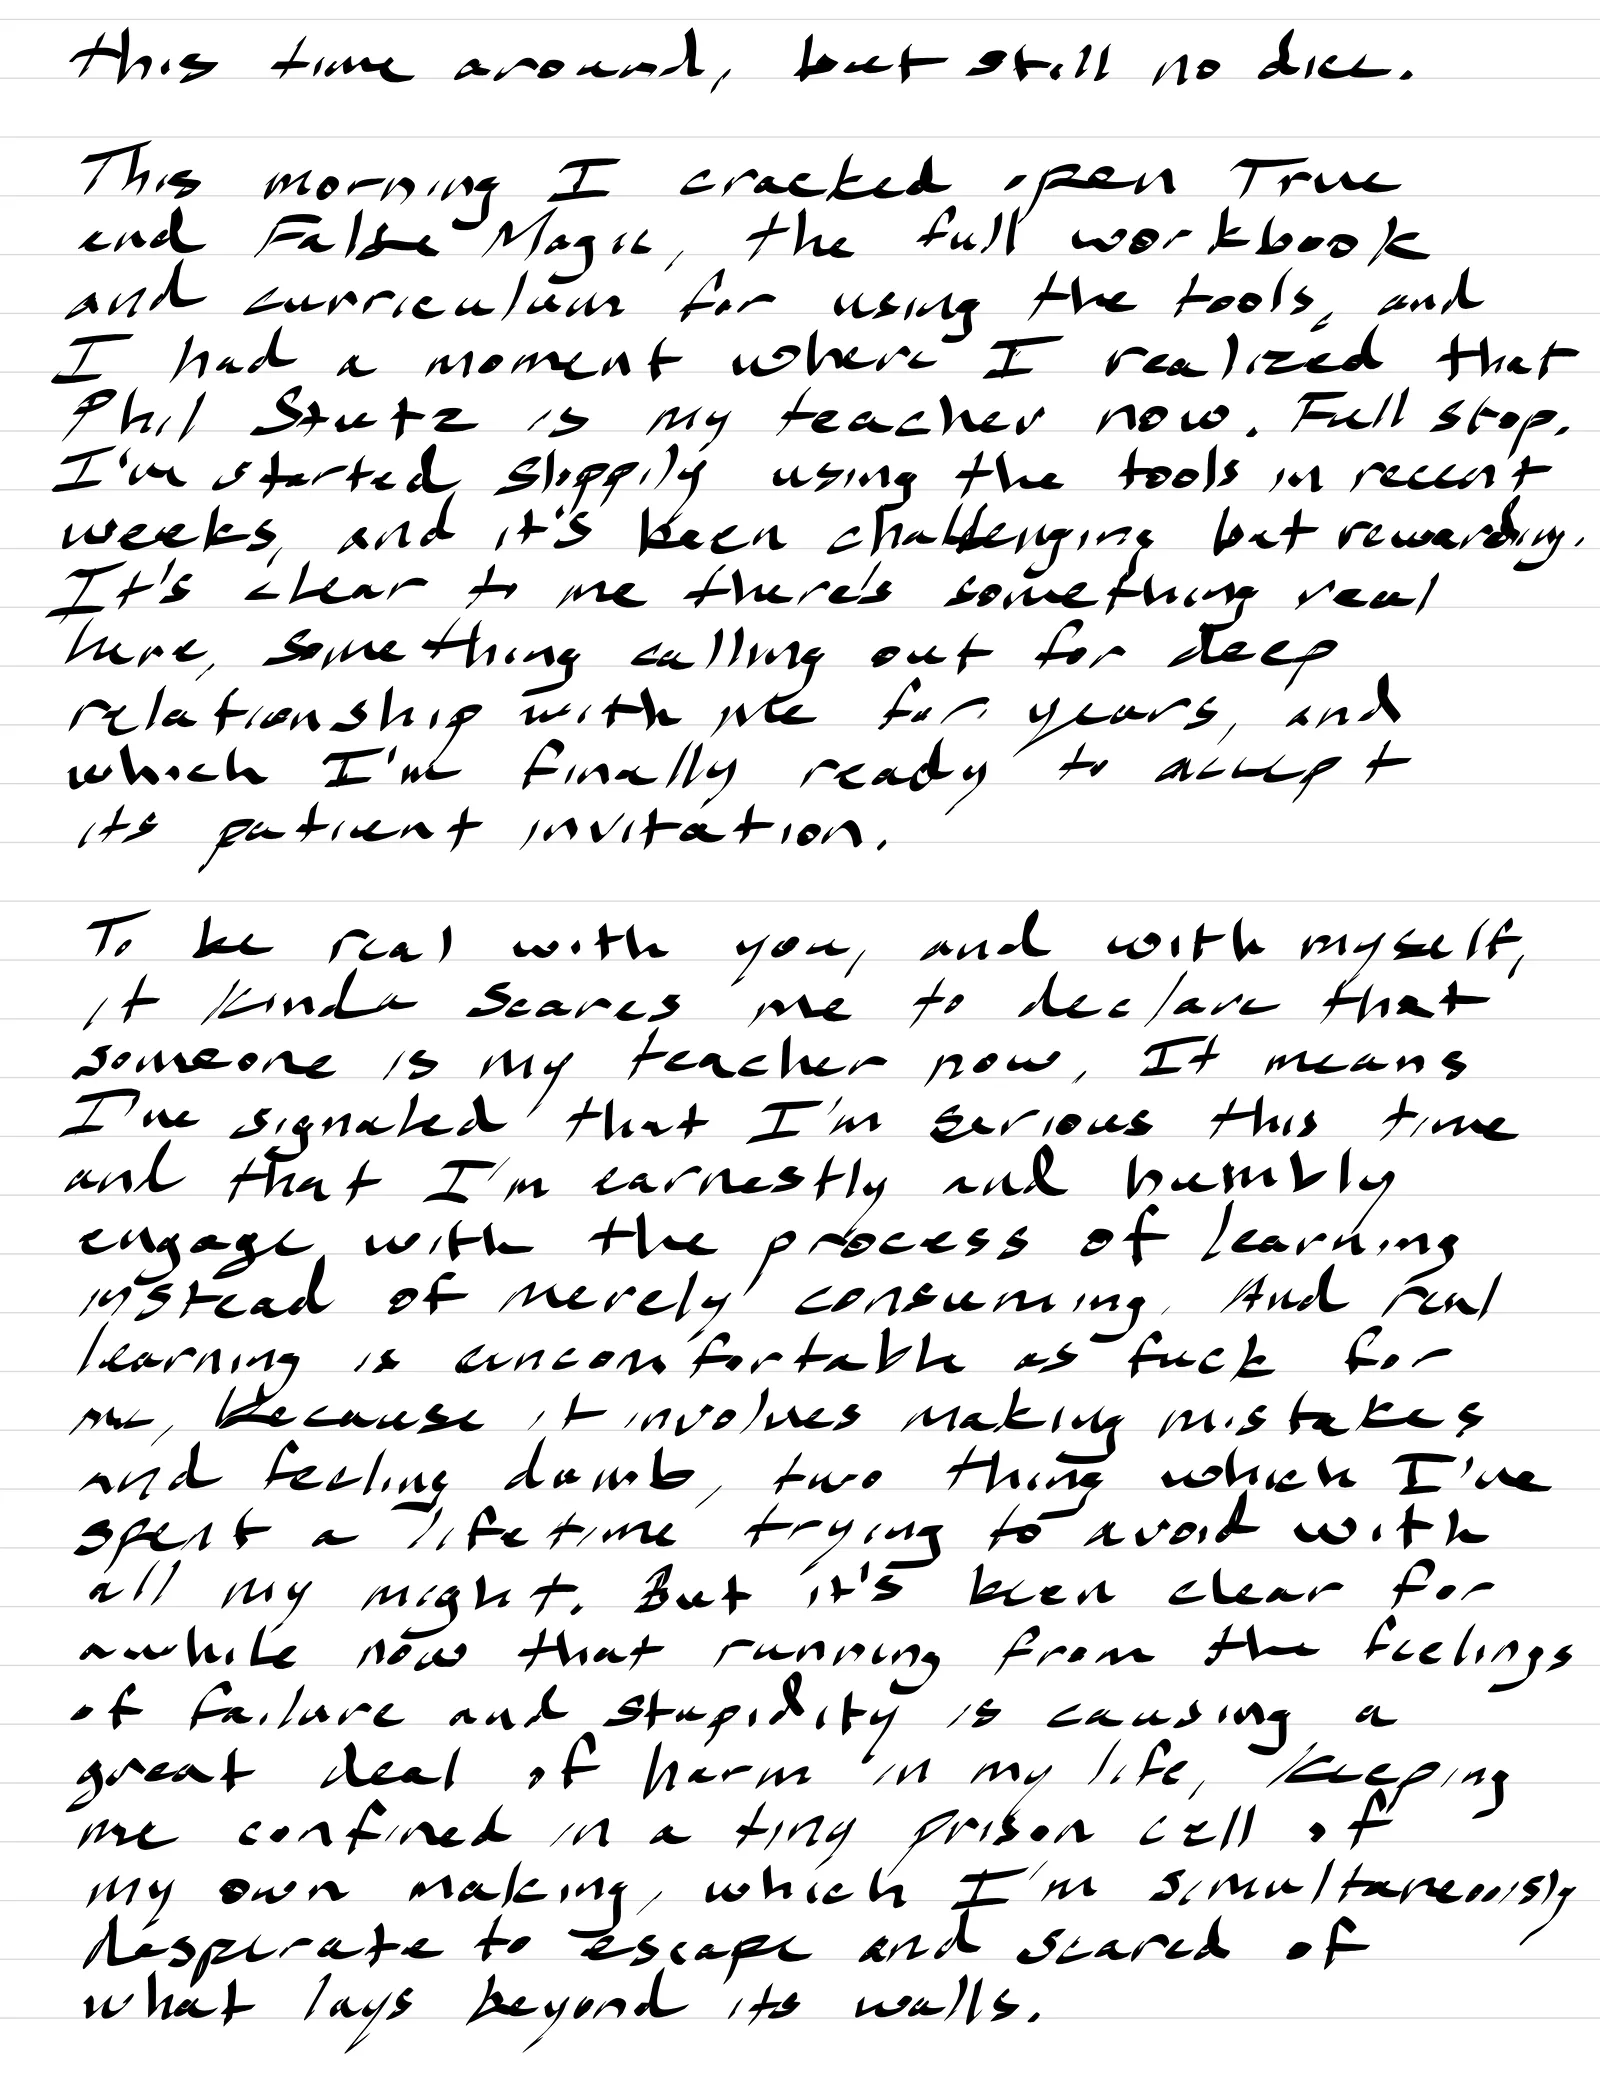 this time around, but still no dice.
This morning I cracked open True
and False Magic, the full workbook
and curriculum for using the tools, and
I had a moment where I realized that
Phil Stutz is my teacher now. Full stop.
I'm started sloppily using the tools in recent
weeks, and it's been challenging but rewarding.
It's clear to me there's something real
here, something calling out for deep
relationship with me for years, and
which I'm finally ready to accept
its patient invitation.
To be real with you, and with myself,
it kinda scares me to declare that
someone is my teacher now. It means
I've signaled that I'm serious this time
and that I'm earnestly and humbly
engage with the process of learning
instead of merely consuming. And real
learning is uncomfortable as fuck for
me, because it involves making mistakes
and feeling dumb, two thing which I've
spent a lifetime trying to avoid with
all my might. But it's been clear for
awhile now that running from the feelings
of failure and stupidity is causing a
great deal of harm in my life, keeping
me confined in a tiny prison cell of
my own making, which I'm simultaneously
desperate to escape and scared of
what lays beyond its walls.